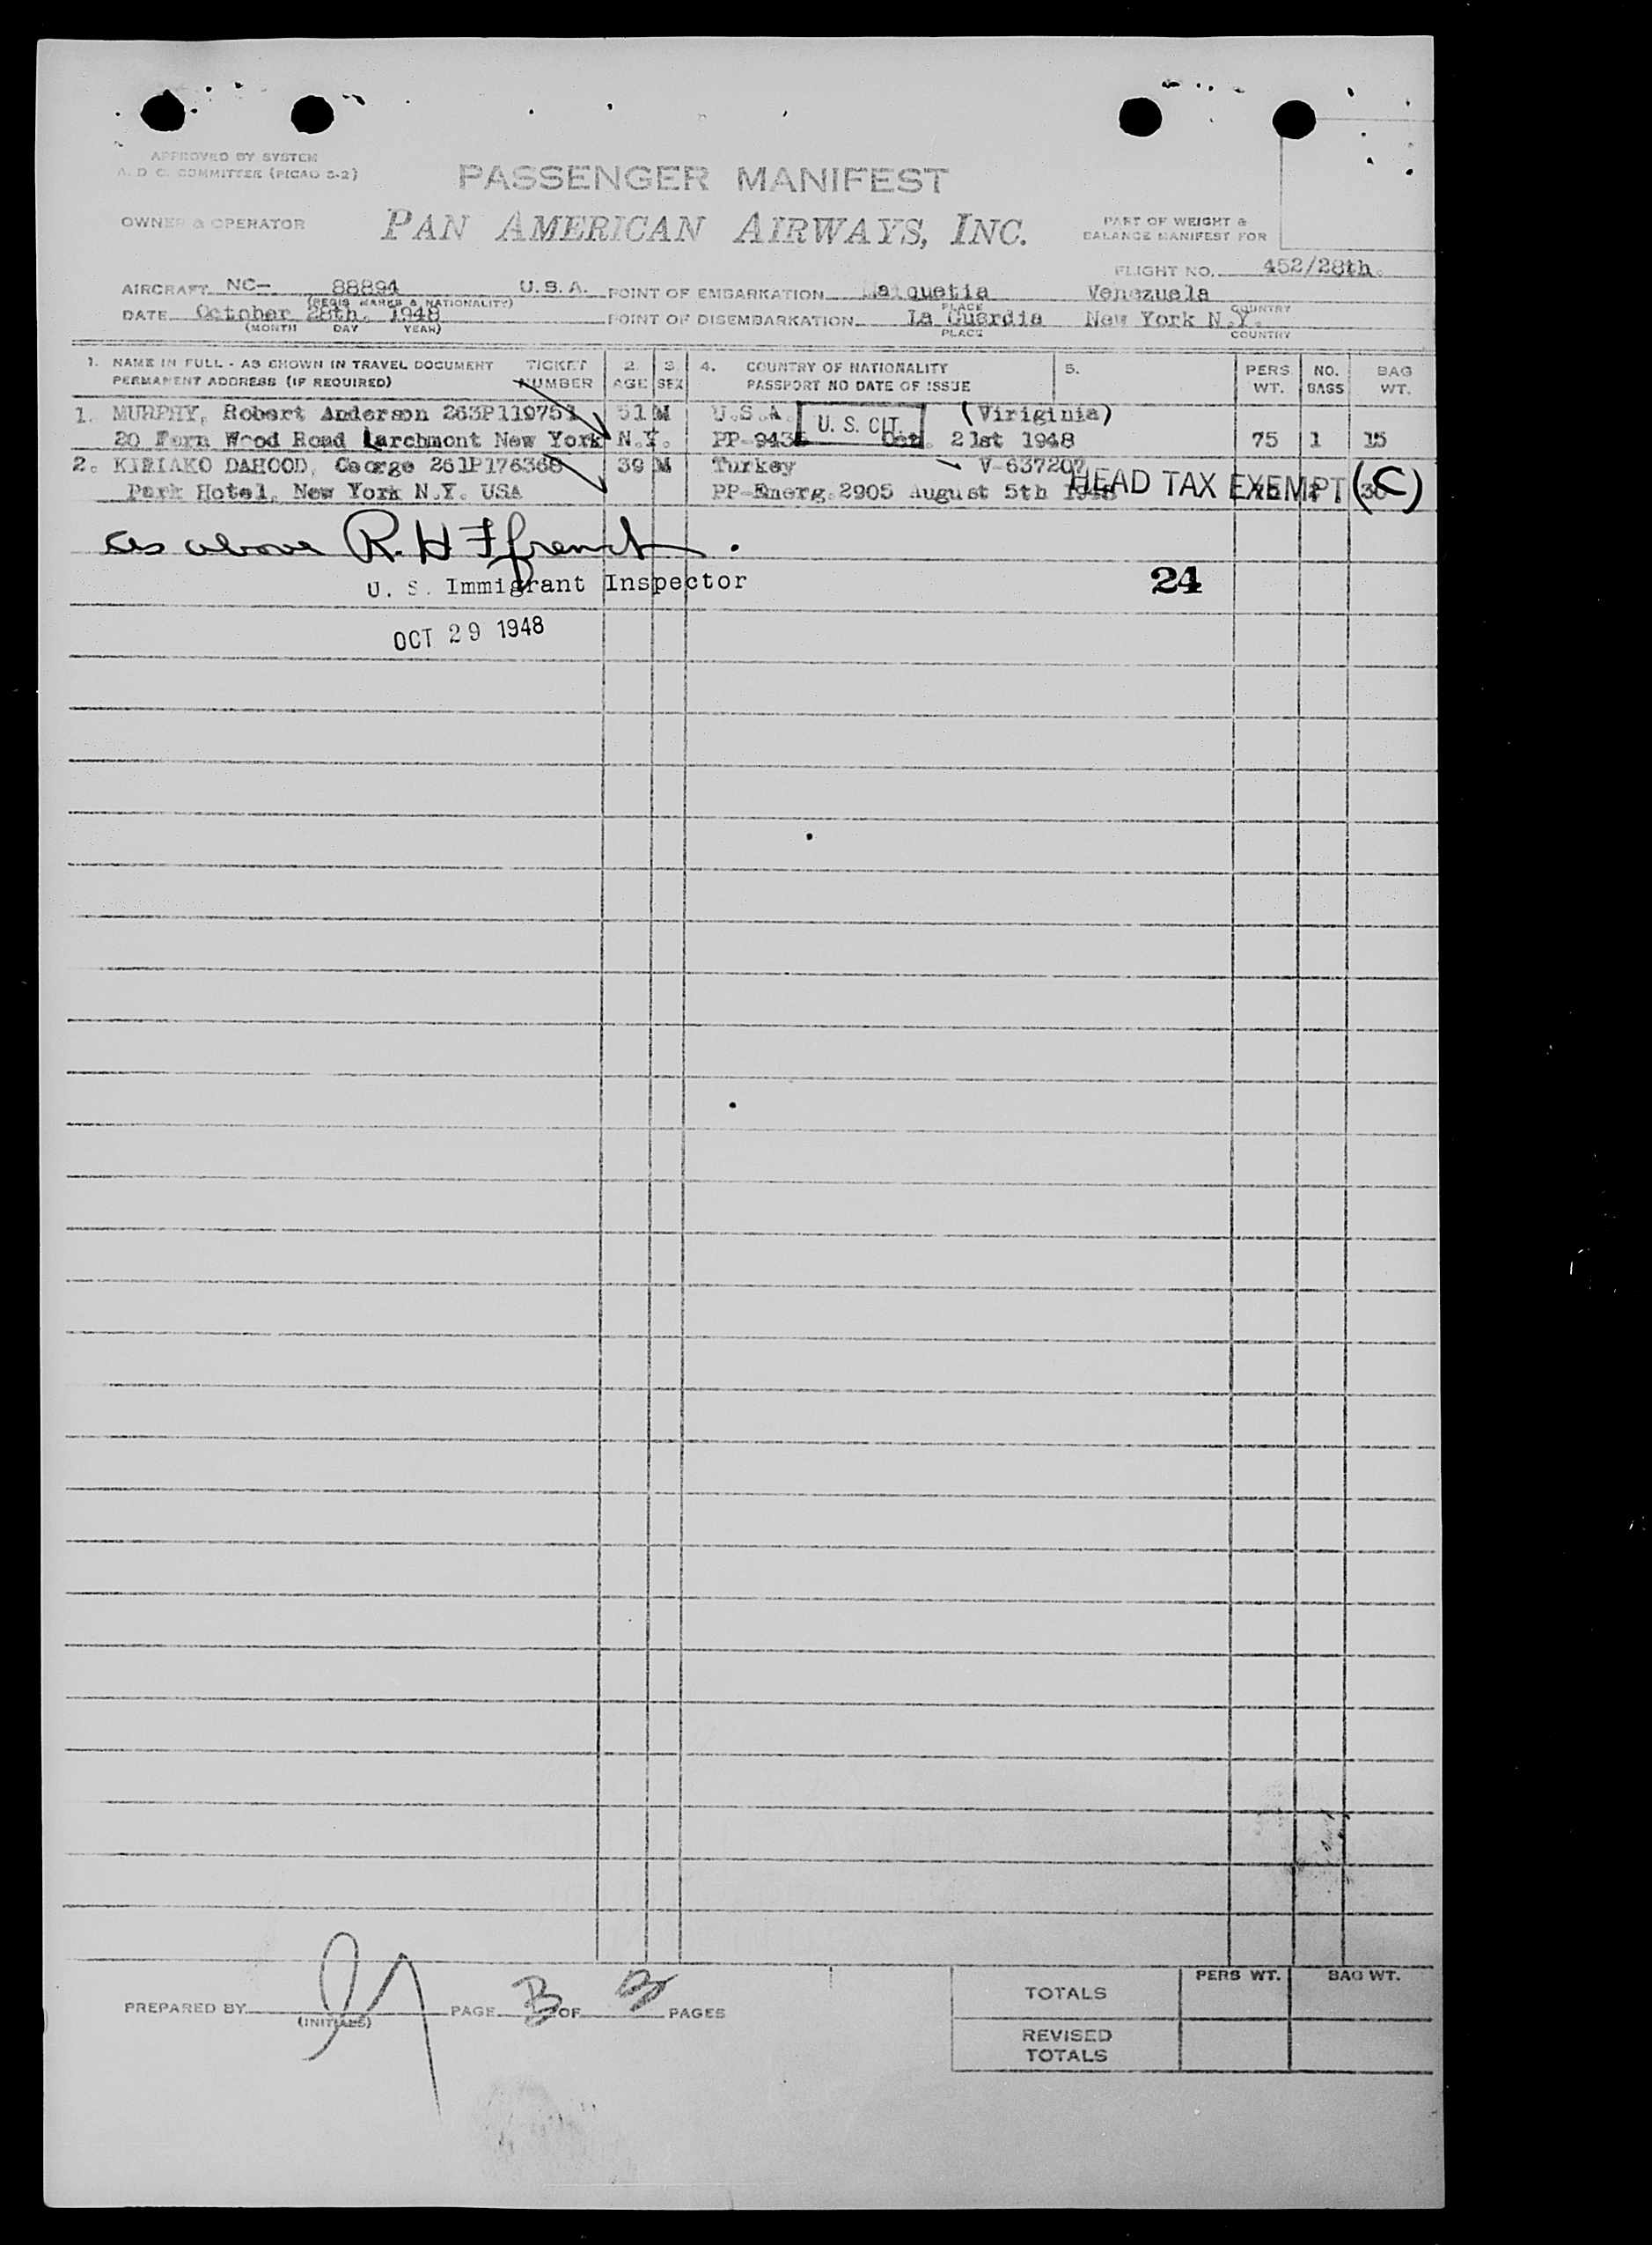 APPROVED BY SYSTEM
A. D. C. COMMITTEE (PICAO S-2)
PASSENGER MANIFEST
OWNER & OPERATOR
PAN AMERICAN AIRWAYS, INC.
PART OF WEIGHT &
BALANCE MANIFEST FOR
FLIGHT NO. 452/28th.
AIRCRAFT NC- 88894 U.S.A. POINT OF EMBARKATION Maiquetia Venezuela
(REGIS MARKS & NATIONALITY) PLACE COUNTRY
DATE October 28th. 1948 POINT OF DISEMBARKATION La Guardia New York N.Y.
(MONTH DAY YEAR) PLACE COUNTRY
1. NAME IN FULL - AS SHOWN IN TRAVEL DOCUMENT TICKET 2. 3. 4. COUNTRY OF NATIONALITY 5. PERS NO. BAG
PERMANENT ADDRESS (IF REQUIRED) NUMBER AGE SEX PASSPORT NO DATE OF ISSUE WT. BAGS WT.
1. MURPHY, Robert Anderson 263P119751 51 M U.S.A. (Viriginia)
U. S. CIT.
20 Fern Wood Road Larchmont New York N.Y. PP-943 Oct. 21st 1948 75 1 15
2. KIRIAKO DAHOOD, George 261P176368 39 M Turkey V-637207
Park Hotel, New York N.Y. USA PP-Emerg.2905 August 5th 1948 30
HEAD TAX EXEMPT (C)
as above R. H Ffrench.
U. S. Immigrant Inspector
24
OCT 29 1948
PREPARED BY
(INITIALS)
PAGE 3 OF 3 PAGES
PERS WT. BAG WT.
TOTALS
REVISED
TOTALS